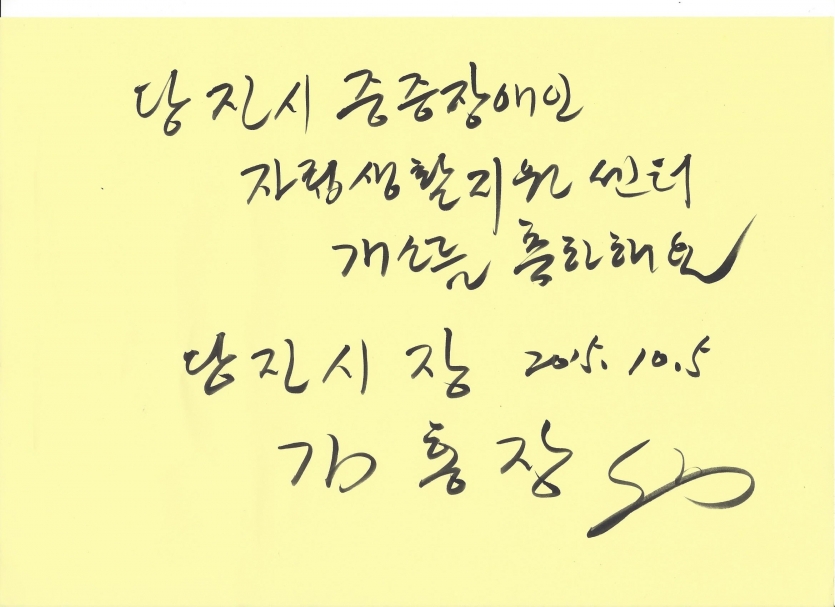 당진시 중증장애인
자립생활지원 센터
개소를 축하해요
당진시장 2015. 10. 5
김홍장